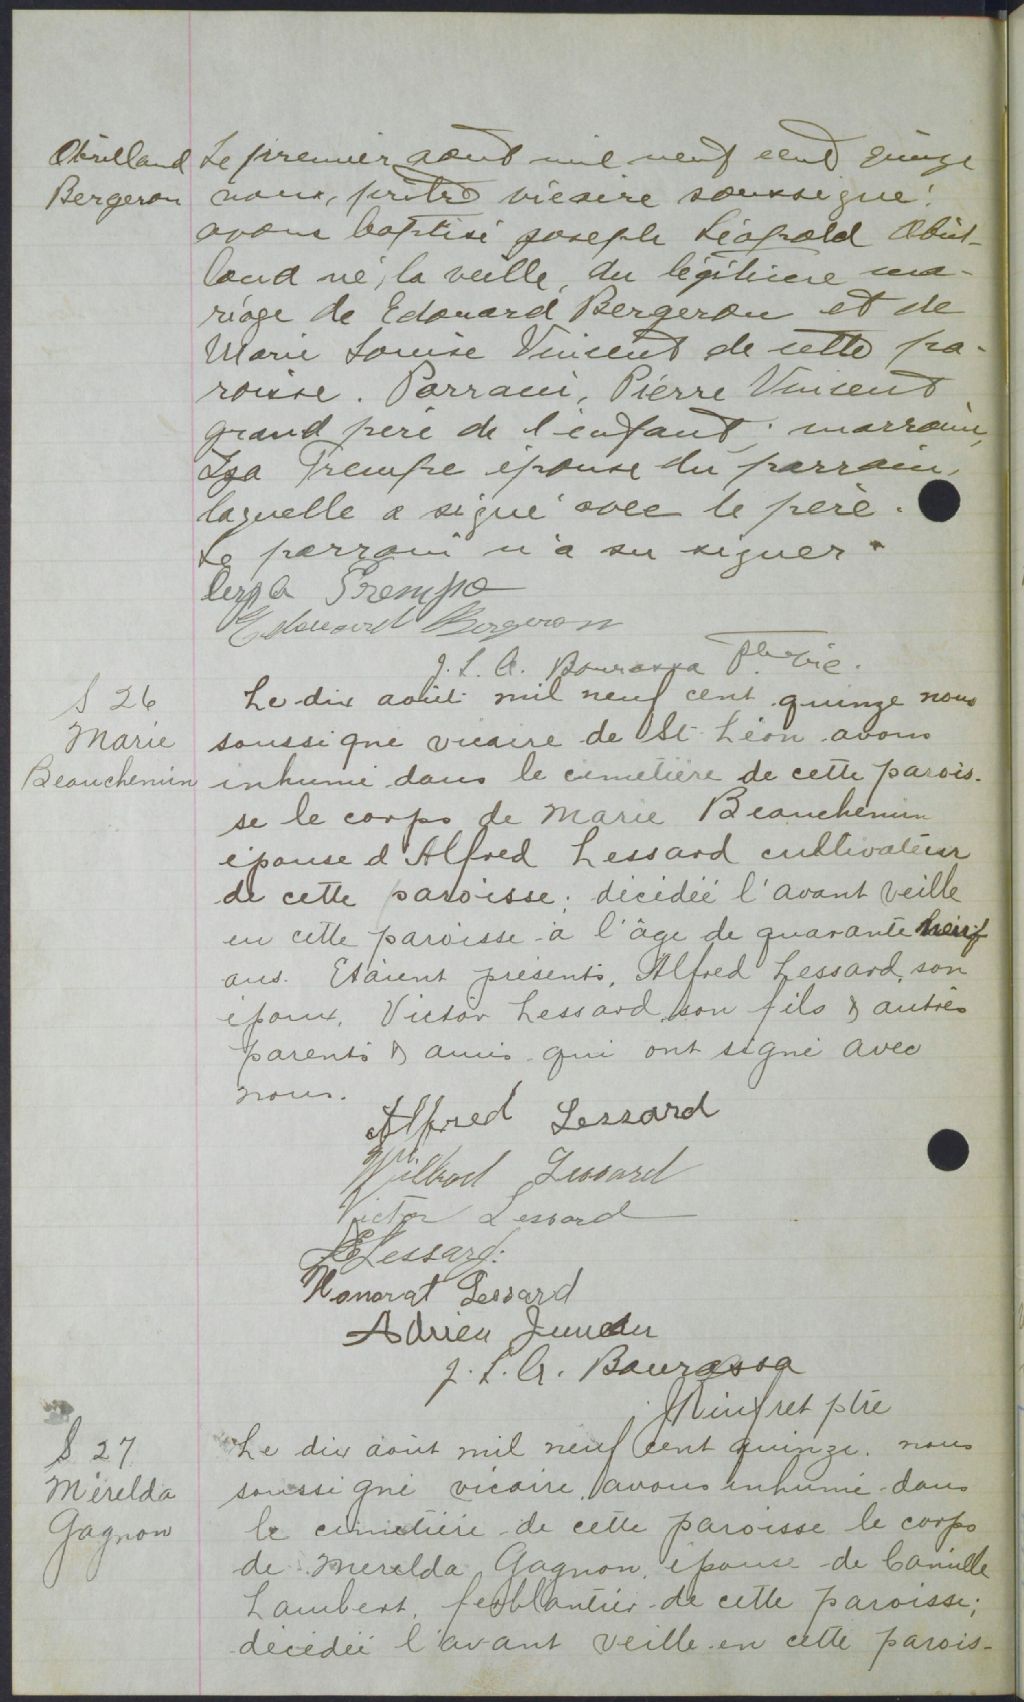 Bergeron
Le premier aout mil neuf cent quinze
nous, prêtre vicaire soussigné
avons baptisé Joseph Léopold
land né, la veille, du légitime ma-
riage de Edouard Bergeron et de
Marie Louise Vincent de cette pa-
roisse. Parrain, Pierre Vincent
grand père de l'enfant; marraine,
Trempe épouse du parrain,
laquelle a signé avec le père.
Le parrain n'a su signer.
Trempe
Edouard Bergeron
J. L. A. Bourassa Ptre vic.
S 26
Marie
Beauchemin
Le dix août mil neuf cent quinze nous
soussigné vicaire de St Léon avons
inhumé dans le cimetière de cette parois-
se le corps de Marie Beauchemin
épouse d'Alfred Lessard cultivateur
de cette paroisse; décédée l'avant veille
en cette paroisse à l'âge de quarante neuf
ans. Etaient présents, Alfred Lessard, son
époux, Victor Lessard son fils & autres
parents & amis qui ont signé avec
nous.
Alfred Lessard
Wilbrod Lessard
Victor Lessard
Lessard.
Honorat Lessard
Adrien Juneau
J. L. A. Bourassa
Rinfret ptre
S 27
Mérelda
Gagnon
Le dix août mil neuf cent quinze, nous
soussigné vicaire, avons inhumé dans
le cimetière de cette paroisse le corps
de Merelda Gagnon, épouse de Camille
Lambert, ferblantier de cette paroisse;
décédée l'avant veille en cette parois-